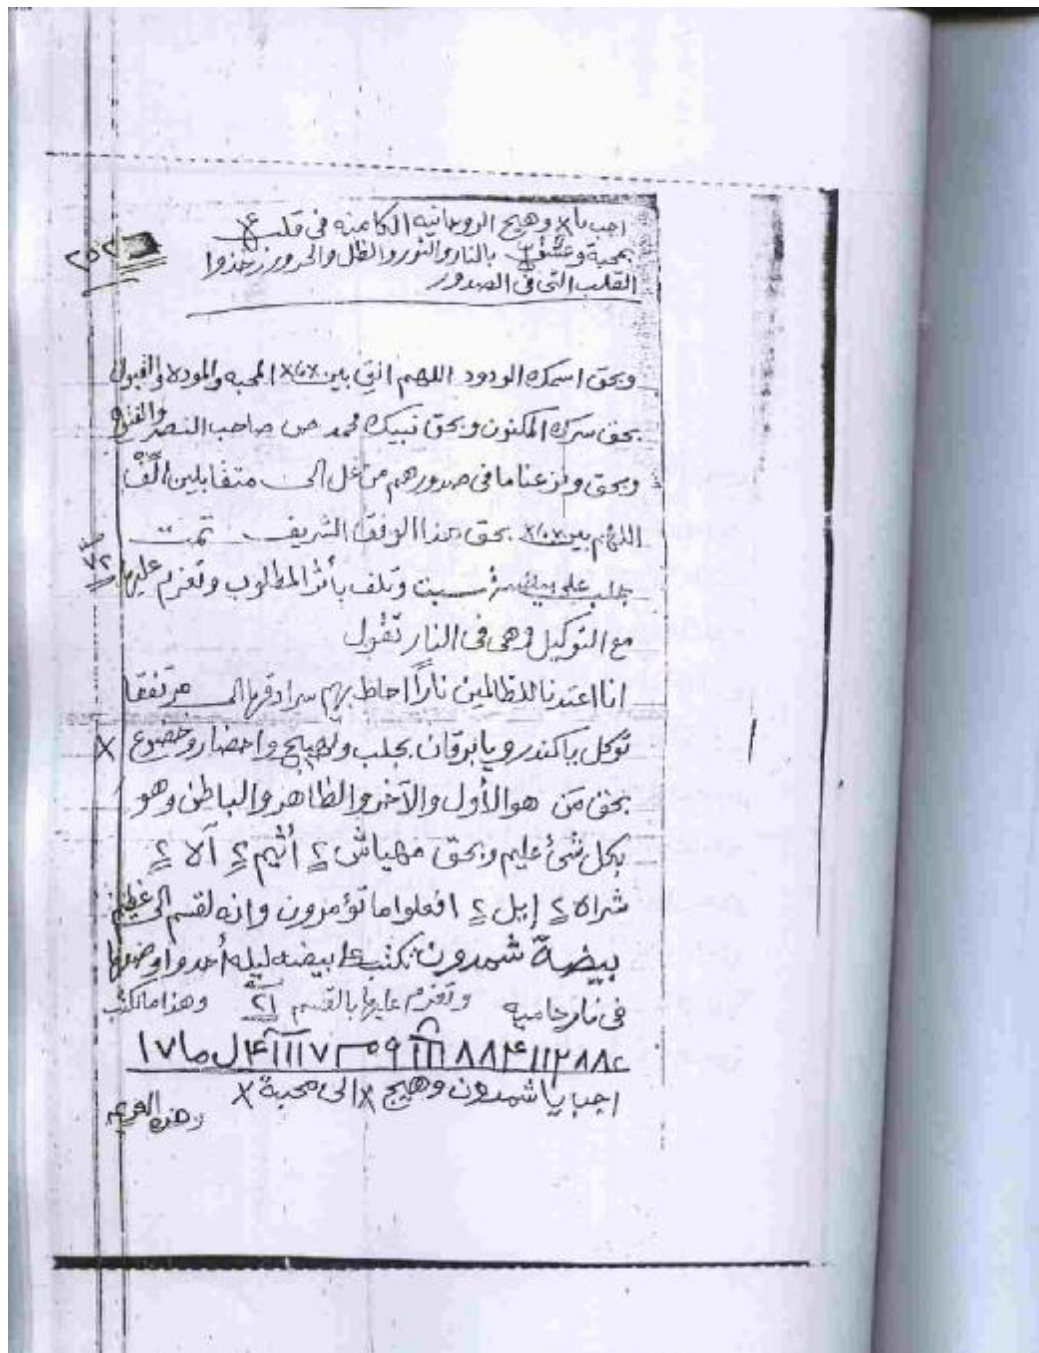 اجب يا x وهيج الروحانيه الكامنه فى قلب
بمحبة وعشق بالنار والنور والظل والحرور خذوا
القلب التى فى الصدور
٢٥٢
وبحق اسمك الودود اللهم الق بين المحبه والموده والقبول
بحق سرك المكنون وبحق نبيك محمد ص صاحب النصر والفتوح
وبحق ونزعنا ما فى صدورهم من غل الى متقابلين الّف
اللهم بين بحق هذا الوفق الشريف تمت
جلب على سبت وتلف بأثر المطلوب وتعزم عليها ٧٢
مع التوكيل وهى فى النار تقول
انا اعتدنا للظالمين ناراً احاط بهم سرادقها الى مرتفقا
توكل يا كندر ويا برقان بجلب وتهييج واحضار وخضوع x
بحق مَن هو الأول والآخر والظاهر والباطن وهو
بكل شئ عليم وبحق مهياش ٢ أشيم ٢ آلا ٢
شراه ٢ إيل ٢ افعلوا ما تؤمرون وانه لقسم الى عظيم
بيضة شمدون تكتب ع بيضه ليله أحد واوضعها
فى نار حاميه وتعزم عليها بالقسم ٢١ وهذا ما تكتب
اجب يا شمدون وهيج x الى محبة x
وهذه العزيمه